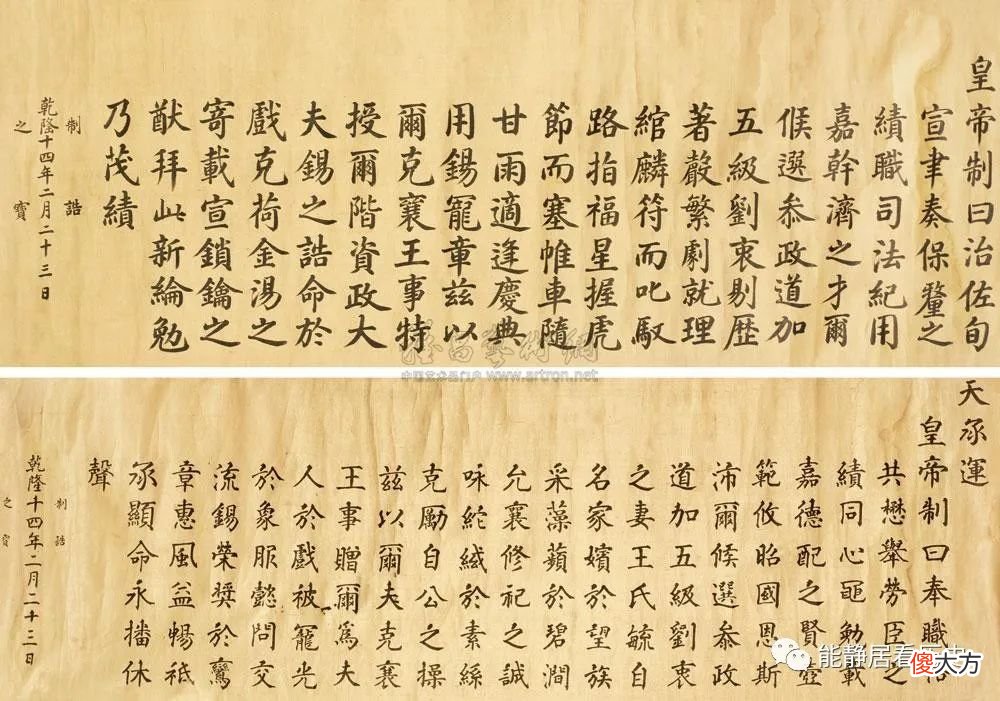 皇帝制曰治佐旬
宣聿奏保釐之
績職司法紀用
嘉幹濟之才爾
候選叅政道加
五級劉衷剔歷
著聲繁劇就理
綰麟符而叱馭
路指福星握虎
節而塞帷車隨
甘雨適逢慶典
用錫寵章兹以
爾克襄王事特
授爾階資政大
夫錫之誥命於
戲克荷金湯之
寄載宣鎖鑰之
猷拜此新綸勉
乃茂績
制誥
乾隆十四年二月二十三日
之寶
雅昌藝術網
中国艺术品门户 www.artron.net
天承運
皇帝制曰奉職
共懋舉勞臣之
績同心黽勉載
嘉德配之賢壼
範攸昭國恩斯
沛爾候選叅政
道加五級劉衷
之妻王氏毓自
名家嬪於望族
采藻蘋於碧澗
允襄修祀之誠
咏紽緎於素絲
克勵自公之操
兹以爾夫克襄
王事贈爾爲夫
人於戲被寵光
於象服懿問交
流錫榮奬於鸞
章惠風益暢祗
承顯命永播休
聲
制誥
乾隆十四年二月二十三日
之寶
能静居看历史
傻大方